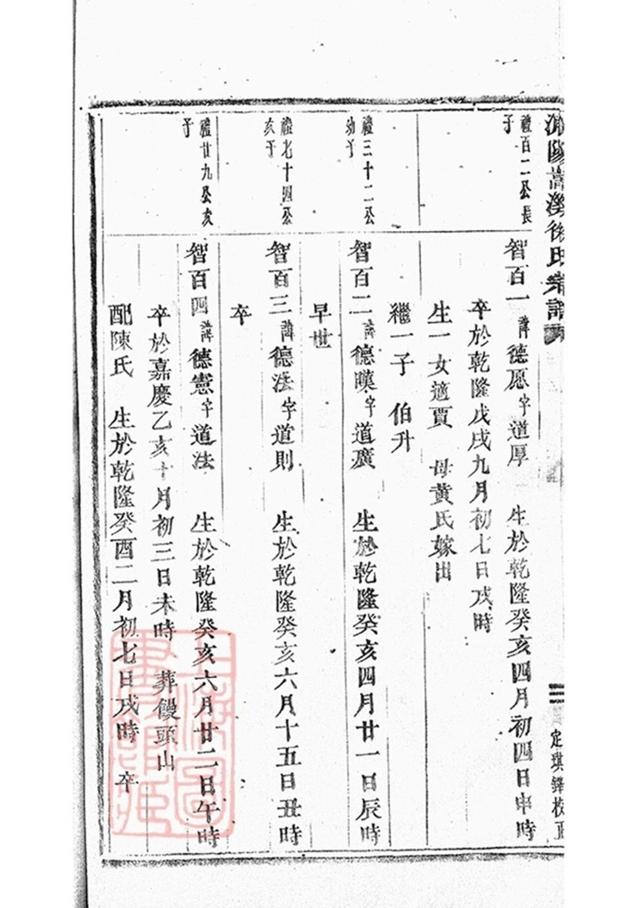 浦陽嵩溪徐氏宗譜
三
定瑛鐸校正
禮百二公長
子
智百一 諱德愿字道厚 生於乾隆癸亥四月初四日申時
卒於乾隆戊戌九月初七日戌時
生一女適賈 母黃氏嫁出
繼一子 伯升
禮三十二公
幼子
智百二 諱德瑛字道廣 生於乾隆癸亥四月廿一日辰時
早世
禮七十四公
次子
智百三 諱德法字道則 生於乾隆癸亥六月十五日丑時
卒
禮廿九公次
子
智百四 諱德憲字道法 生於乾隆癸亥六月廿二日午時
卒於嘉慶乙亥十月初三日未時 葬饅頭山
配陳氏 生於乾隆癸酉二月初七日戌時 卒
上海圖
書館藏